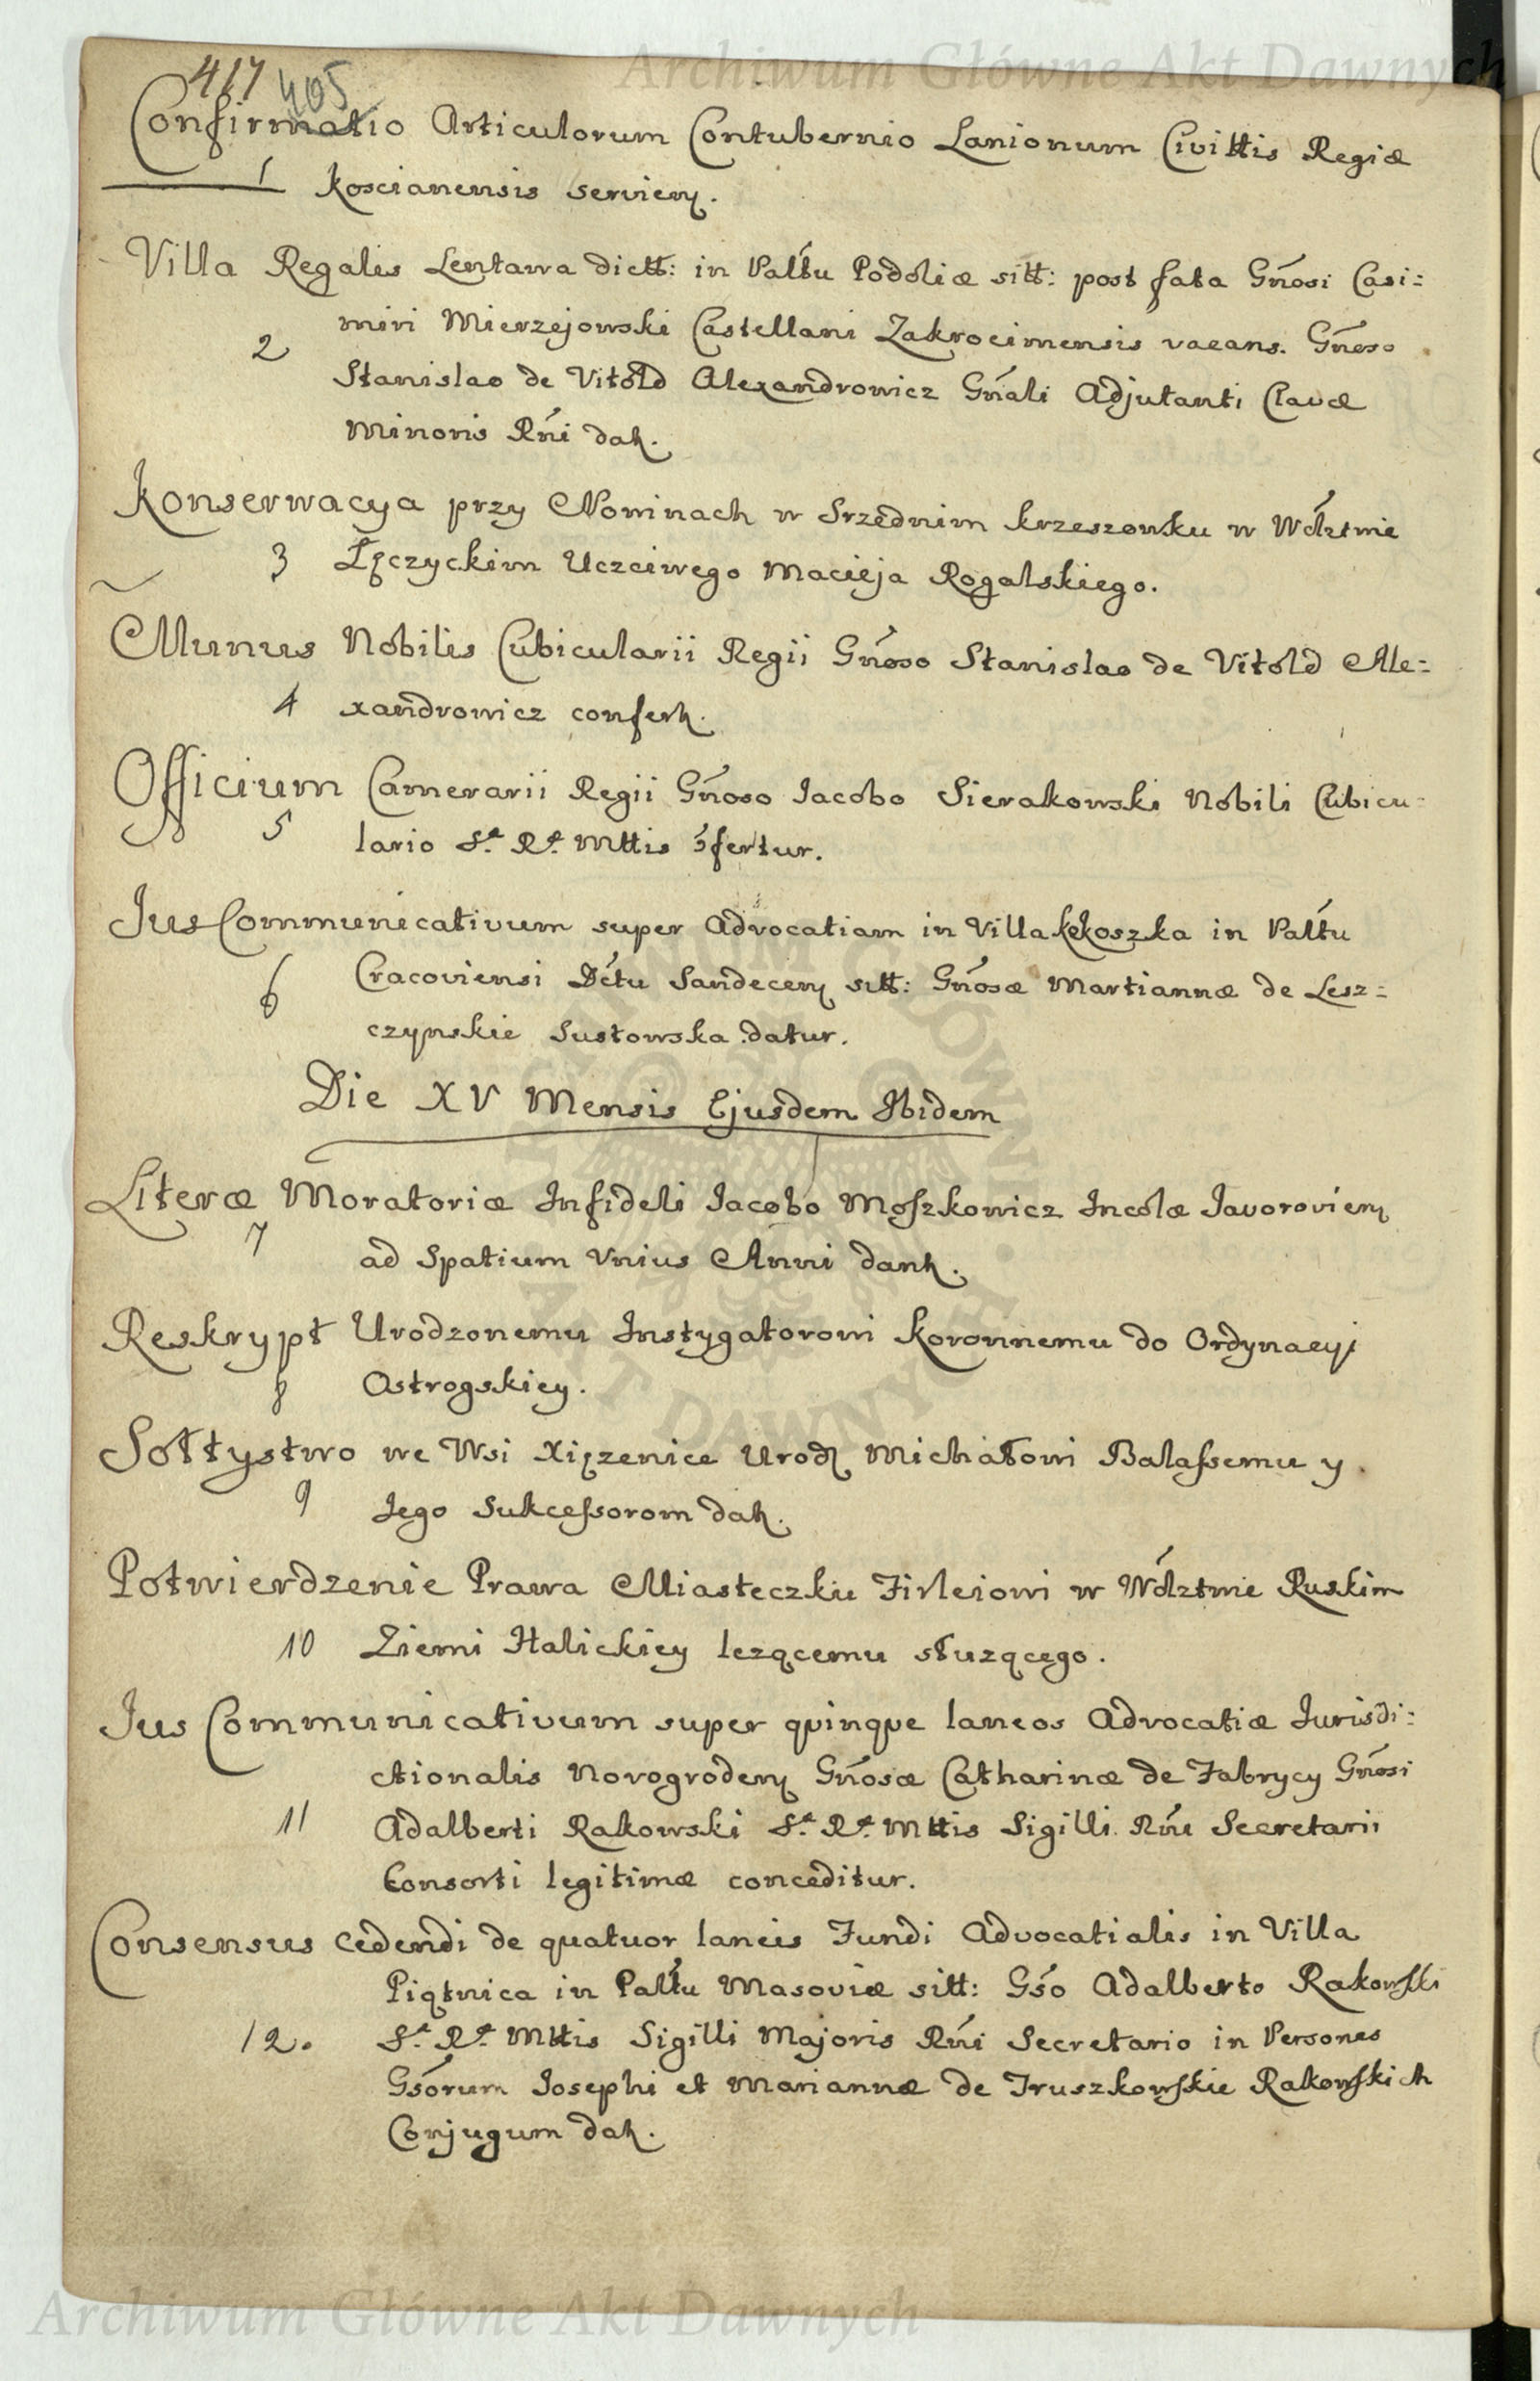 Archiwum Główne Akt Dawnych
417 405
Confirmatio Articulorum Contubernio Lanionum Civittis Regiæ
1 Koscianensis servien.
Villa Regalis Lentawa dictt: in Paltu Podoliæ sitt: post fata Gnosi Casi=
miri Mierzejowski Castellani Zakrocimensis vacans. Gnoso
2
Stanislao de Vitold Alexandrowicz Gnali Adjutanti Clavæ
Minoris Rni dat.
Konserwacya przy Nowinach w Srzednim Krzeszowku w Wdztwie
3 Łęczyckim Uczciwego Macieja Rogalskiego.
Munus Nobilis Cubicularii Regii Gnoso Stanislao de Vitold Ale=
4 xandrowicz confert.
Officium Camerarii Regii Gnoso Iacobo Sierakowski Nobili Cubicu=
5 lario S.æ R.æ Mttis ɔfertur.
Jus Communicativum super Advocatiam in Villa Kękoszka in Paltu
6 Cracoviensi Dctu Sandecen sitt: Gnosæ Martiannæ de Lesz=
czynskie Sustowska datur.
Die XV Mensis Ejusdem Ibidem
Literæ Moratoriæ Infideli Iacobo Moszkowicz Incolæ Javorovien
7
ad Spatium Vnius Anni dant.
Reskrypt Urodzonemu Instygatorowi Koronnemu do Ordynacyi
8 Ostrogskiey.
Sołtystwo we Wsi Xięzenice Urodz Michałowi Balassemu y
9 Jego Sukcessorom dat.
Potwierdzenie Prawa Miasteczku Firleiowi w Wdztwie Ruskim
10 Ziemi Halickiey lezącemu słuzącego.
Jus Communicativum super quinque laneos Advocatiæ Jurisdi=
ctionalis Novogroden Gnosæ Catharinæ de Fabrycy Gnosi
11 Adalberti Rakowski S.æ R.æ Mttis Sigilli Rni Secretarii
Consorti legitimæ conceditur.
Consensus cedendi de quatuor laneis Fundi Advocatialis in Villa
Piątnica in Paltu Masoviæ sitt: Gso Adalberto Rakowski
12. S.æ R.æ Mttis Sigilli Majoris Rni Secretario in Personas
Gsorum Josephi et Mariannæ de Truszkowskie Rakowskich
Conjugum dat.
Archiwum Główne Akt Dawnych